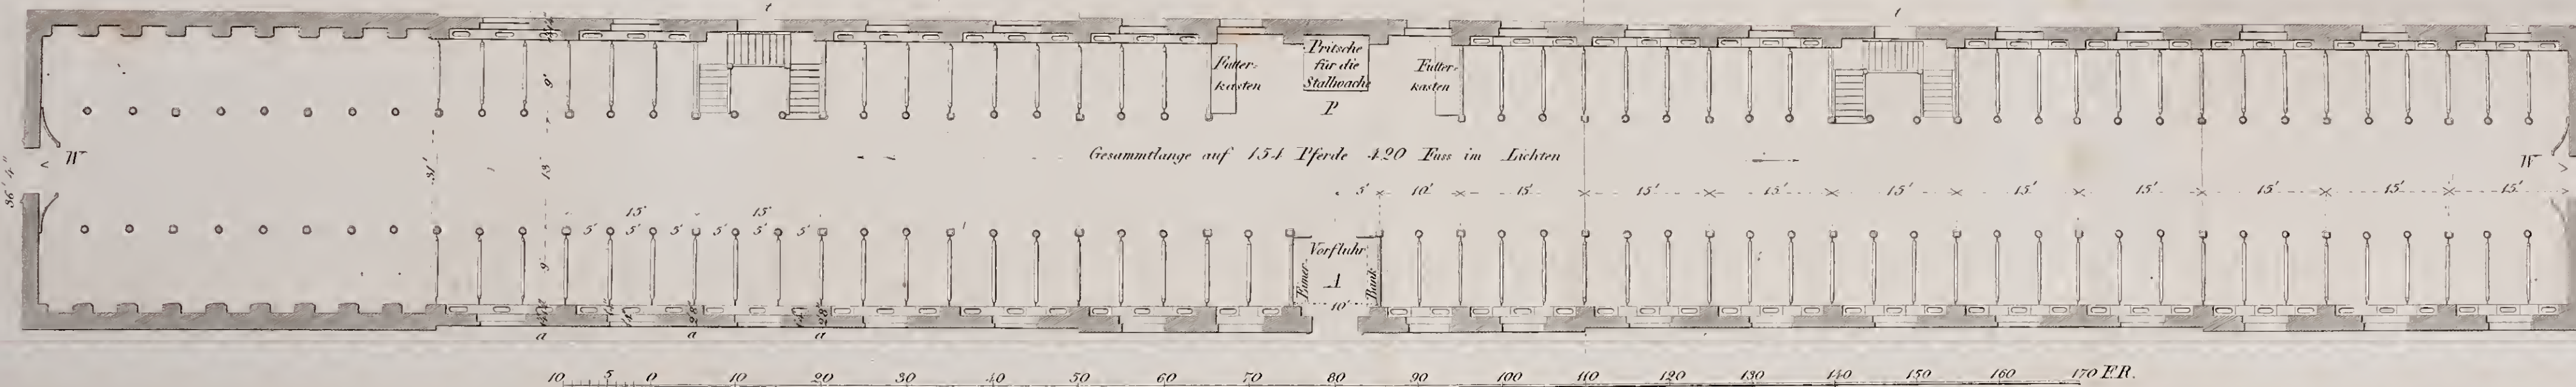 t
t
9'
Futter-
kasten
Pritsche
für die
Stallwache
P
Futter-
kasten
36' 4"
W
31'
13'
Gesammtlange auf 154 Pferde 420 Fuss im Lichten
W
5' 10' 15' 15' 15' 15' 15' 15' 15' 15' 15'
15' 15'
5' 5' 5' 5' 5' 5'
9'
Vorfluhr
Eimer-
A
Bank
10'
28"
28"
a a a
10 5 0 10 20 30 40 50 60 70 80 90 100 110 120 130 140 150 160 170 F.R.